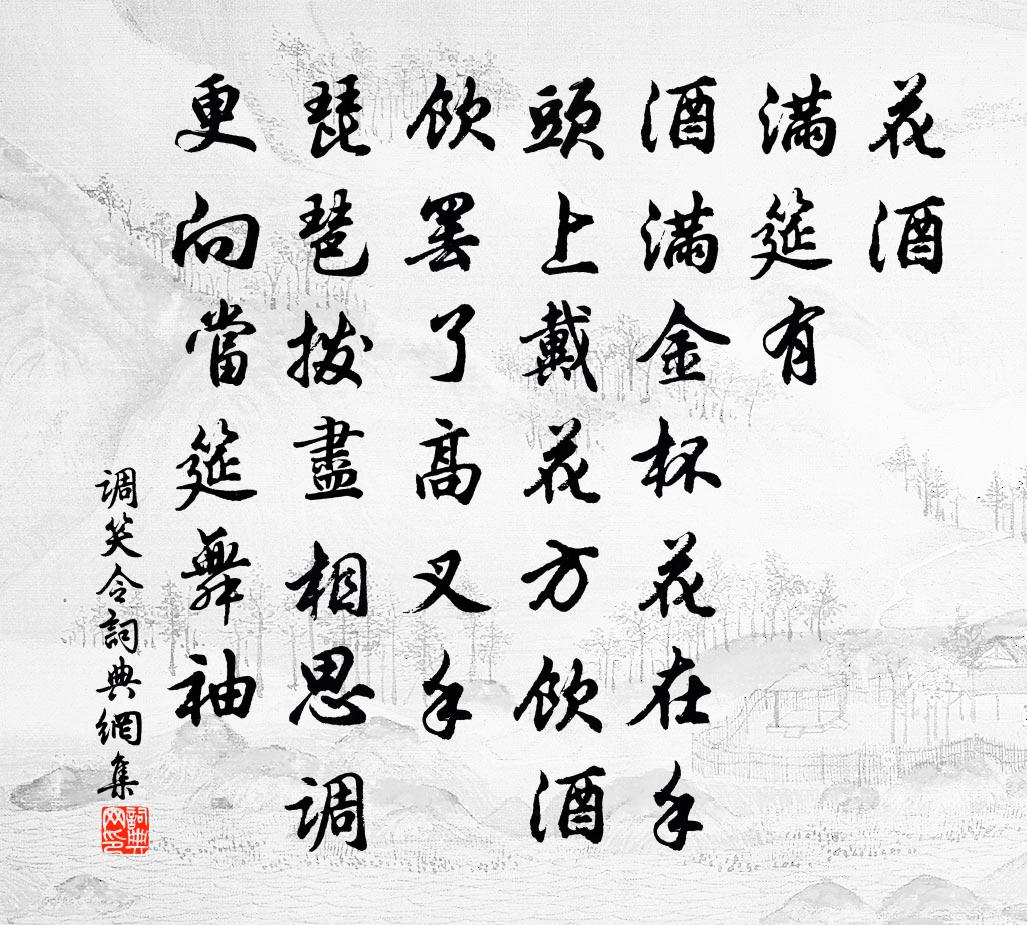 花酒
满筵有
酒满金杯花在手
頭上戴花方飲酒
飲罢了高叉手
琵琶拨盡相思调
更向當筵舞袖
调笑令詞典網集